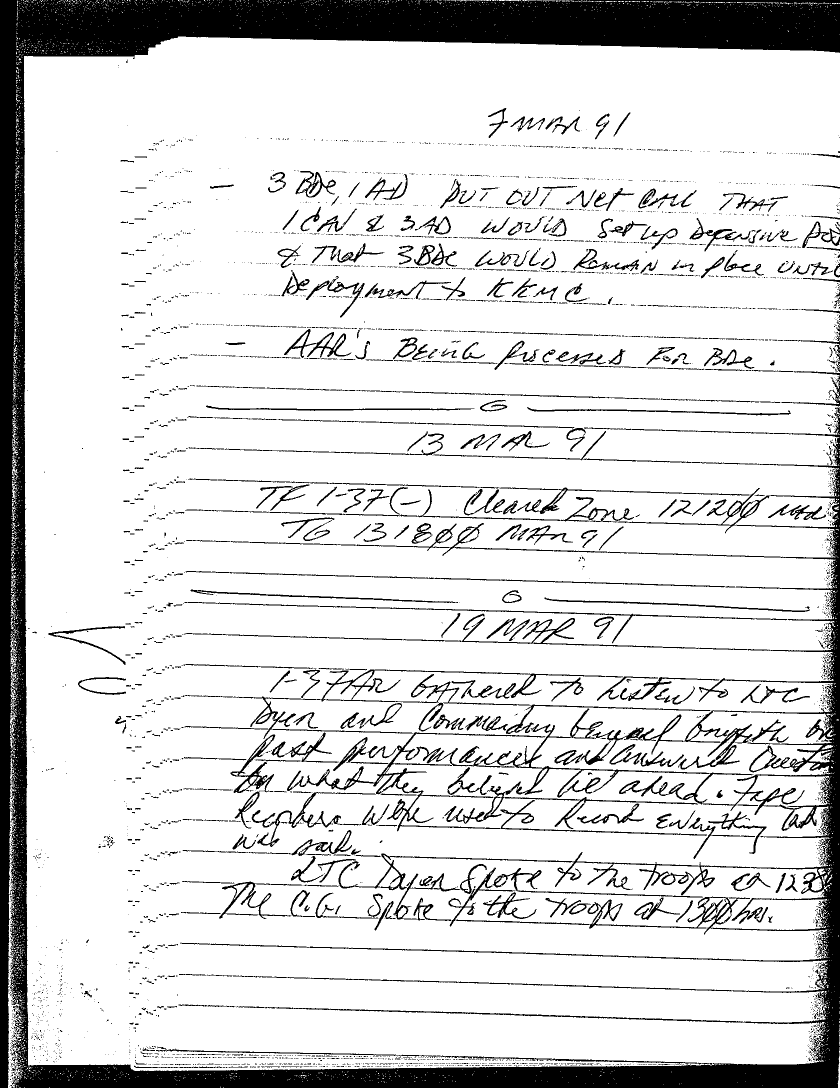 7 MAR 91
— 3 BDe, 1 AD PUT OUT Net CALL THAT
1 CAV & 3 AD WOULD Set up Defensive Pos
& That 3 BDe WOULD Remain in place UNTIL
Deployment to KKMC.
— AAR's Being Processed For BDe.
G
13 MAR 91
TF 1-37(-) Cleared Zone 1212ØØ MAR
TO 1318ØØ MAR 91
G
19 MAR 91
1-37 AR Gathered to Listen to LTC
Dyer and Commanding General Griffith on
past performances and answered Question
on what they believe lie ahead. Tape
Recorders were used to Record Everything that
was said.
LTC Dyer Spoke to the troops at
The C.G. Spoke to the troops at 13ØØ hrs.